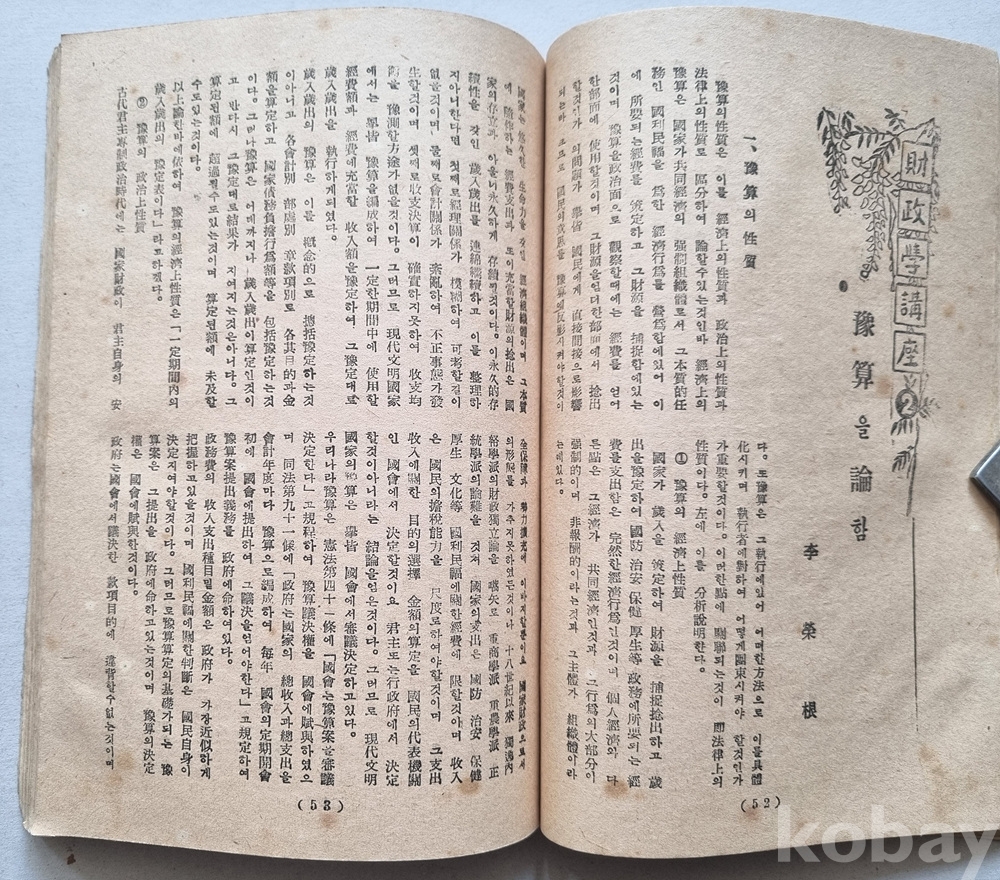 財政學講座 ②
豫算을 論함
李榮根
一、豫算의 性質
豫算의性質은 이를 經濟上의性質과 政治上의性質과
法律上의性質로 區分하여 論할수있는것인바 經濟上의
豫算은 國家가共同經濟의 强制組織體로서 그本質的任
務인 國利民福을 爲한 經濟行爲를 營爲함에있어 이
에 所要되는經費를 策定하고 그財源을 捕捉함에있는
것이며 豫算을政治面으로 觀察할때에는 經費를 얻어
한部面에 使用할것이며 그財源을어떠한部面에서 捻出
할것인가 의問題가 擧皆 國民에게 直接間接으로影響
되는바 으로 國民의意思를 豫算에反影시켜야할것이
다。또豫算은 그執行에있어 어떠한方法으로 이를具體
化시키며 執行者에對하여 어떻게團束시켜야 할것인가
가重要할것이다。이러한點에 關聯되는것이 即法律上의
性質이다。左에 이를 分析說明한다。
① 豫算의 經濟上性質
國家가 歲入을 策定하여 財源을 捕捉捻出하고 歲
出을豫定하여國防 治安 保健 厚生等 政務에所要되는 經
費를支出함은 完然한經濟行爲인것이며 個人經濟와 다
른點은 그經濟가 共同經濟인것과 그行爲의大部分이
强制的이며 非報酬的이라는것과 그主體가 組織體이라
는데있다。
(52)
國家는 悠久한 生命力을 갖인 經濟組織體이며 그本質
에 隨伴하는 經費支出과 또이充當할財源의捻出은 國
家의存立과 아울너永久하게 存續될것이다。이永久的存
續性을 갖인 歲入歲出을 連綿繼續하고 이를 整理하
지아니한다면 첫째로經理關係가 模糊하여 可考할길이
없을것이며 둘째로會計關係가 紊亂하여 不正事態가發
生할것이며 셋째로收支決算이 確實하지못하여 收支均
衡을 豫測할方途가없을것이다。그러므로 現代文明國家
에서는 擧皆 豫算을編成하여 一定한期間中에 使用할
經費額과 經費에充當할 收入額을豫定하여 그豫定대로
歲入歲出을 執行하게되였다。
歲入歲出의 豫算은 이를 槪念的으로 摠括豫定하는것
이아니고 各會計別 部處別 章款項別로 各其目的과金
額을算定하고 國家債務負擔行爲額等을 包括豫定하는것
이다。그러나豫算은 어데까지나 歲入歲出이算定인것이
고 반다시 그豫定대로結果가 지여지는것은아니다。그
算定된額에 超過될수도있는것이며 算定된額에 未及할
수도있는것이다。
以上論한바에依하여 豫算의經濟上性質은「一定期間內의
歲入歲出의 豫定表이다」라고하겠다。
② 豫算의 政治上性質
古代君主專制政治時代에는 國家財政이 君主自身의 安
全保障과 勢力擴充에 이바지할뿐이요 國家財政으로서
의形態를 가추지못하였든것이나 十八世紀以來 獨逸內
務學派의財政獨立論을 嚆矢로 重商學派 重農學派 正
統學派의論難을 것처 國家의支出은 國防 治安 保健
厚生 文化等 國利民福에關한經費에 限할것이며 收入
은 國民의擔稅能力을 尺度로하여야할것이며 支出
收入에關한 目的의選擇 金額의算定을 國民의代表機關
인 國會에서 決定할것이요 君主또는行政府에서 決定
할것이아니라는 結論을얻은것이다。그러므로 現代文明
國家의豫算은 擧皆 國會에서審議決定하고있다。
우리나라豫算은 憲法第四十一條에「國會는豫算案을審議
決定한다」고規程하여 豫算議決權을 國會에賦與하였으
며 同法第九十一條에「政府는國家의 總收入과總支出을
會計年度마다 豫算으로編成하여 每年 國會의定期開會
初에 國會에提出하여 그議決을얻어야한다」고規定하여
豫算案提出義務를 政府에命하여있다。
政務費의 收入支出種目및金額은 政府가 가장近似하게
把握하고있을것이며 國利民福에關한判斷은 國民自身이
決定지여야할것이다。그러므로豫算算定의基礎가되는 豫
算案은 그提出을 政府에命하고있는것이며 豫算의決定
權은 國會에賦與한것이다。
政府는國會에서議決한 款項目的에 違背할수없는것이며
(53)
kobay